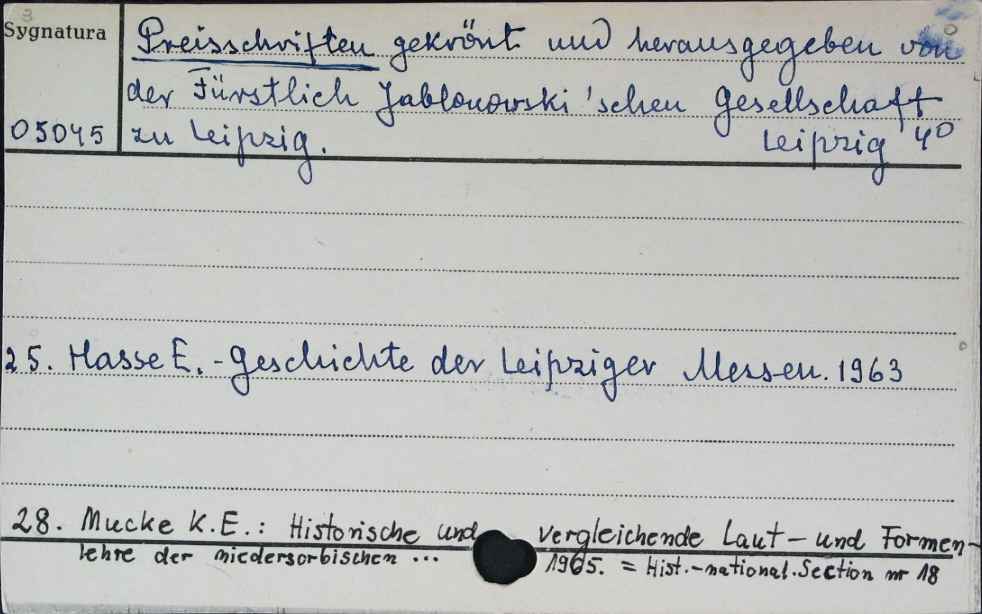 Sygnatura
Preisschriften gekrönt und herausgegeben von
der Fürstlich Jablonowski'schen Gesellschaft
05045 zu Leipzig. Leipzig 4°
25. Hasse E. - Geschichte der Leipziger Messen. 1963
28. Mucke K.E.: Historische und vergleichende Laut- und Formen-
lehre der niedersorbischen ... 1965. = Hist.-national.Section nr 18